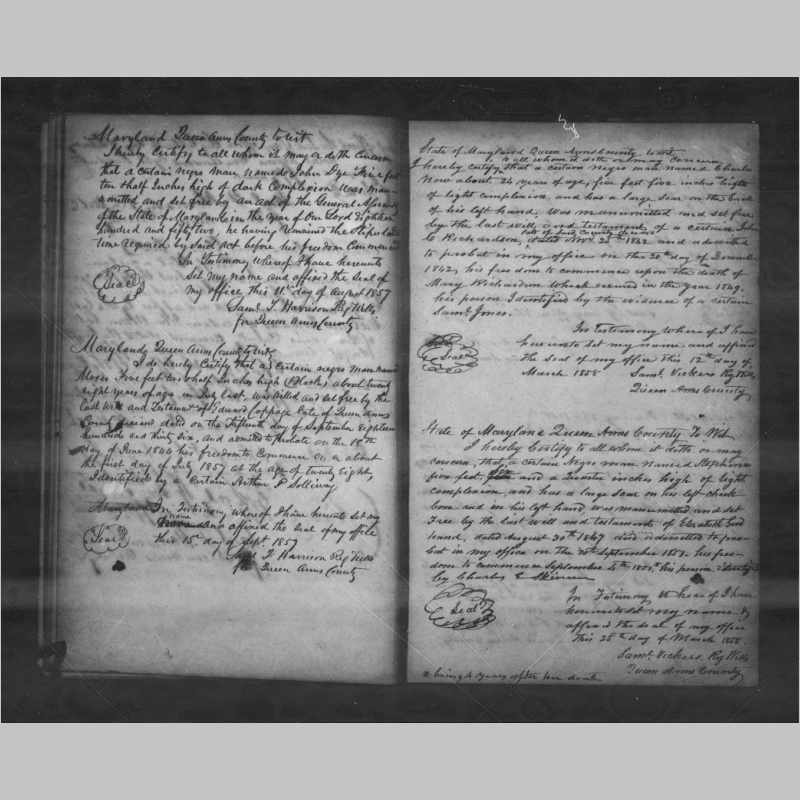 Maryland Queen Anns County to wit
I hereby Certify to all whom it may or doth Concern
that a certain negro man named John Dye five feet
ten half Inches high of dark Complexion was man-
umitted and set free by an act of the General Assembly
of the State of Maryland in the year of Our Lord Eighteen
hundred and fifty two, he having remained the Stipulated
time required by Said Act before his freedom Commenced
In Testimony whereof I have hereunto
Set my name and affixed the Seal of
my office this 11th day of August 1857
Seal
Saml. T. Harrison Reg Wills
for Queen Anns County
Maryland, Queen Anns County to wit
I do hereby Certify that a certain negro man named
Moses five feet two half Inches high (Black) about twenty
eight years of age in July last, was willed and set free by the
Last Will and Testament of Edward Coppage late of Queen Anns
County deceased dated on the fifteenth day of September Eighteen
hundred and thirty Six, and admitted to probate on the 18th
day of June 1840 his freedom to Commence on or about
the first day of July 1857 at the age of twenty Eight,
Identified by a Certain Arthur P Solliway
Maryland In Testimony whereof I have hereunto set my
name and affixed the Seal of my office
this 15th day of Sept. 1857
Seal
T Harrison Reg Wills
for Queen Anns County
State of Maryland Queen Anns County to wit.
to all whom it doth or may concern
I hereby certify, that a certain negro man named Charles
now about 24 years of age, five feet five inches high
of light complexion, and has a large scar on the back
of his left hand, was manumitted and set free
by the last will and testament of a certain John
late of said County deceased
W Richardson, dated Nov. 1842 and admitted
to probat in my office on the 20th day of December
1842, his freedom to commence upon the death of
Mary Richardson which occurred in the year 1849.
his person Identified by the evidence of a certain
Saml. Jones.
In testimony whereof I have
hereunto set my name and affixed
the seal of my office this 12th day of
March 1858 Saml. Vickers Reg Wills
Queen Anns County
Seal
State of Maryland Queen Anns County To Wit
I hereby Certify to all whom it doth or may
concern, that a certain Negro man named Stephen
five feet and a quarter inches high of light
complexion, and has a large scar on his left cheek
bone and in his left hand, was manumitted and set
Free by the last will and testament of Elizabeth
dated August 30th 1847 and admitted to pro-
bat in my office on the September his free-
dom to commence September his person identified
by Charles E Skinner
In Testimony Whereof I have
hereunto set my name &
affixed the seal of my office
This 25th day of March 1858
Seal
Saml. Vickers, Reg Wills
Queen Anns County
being 4 years after her death